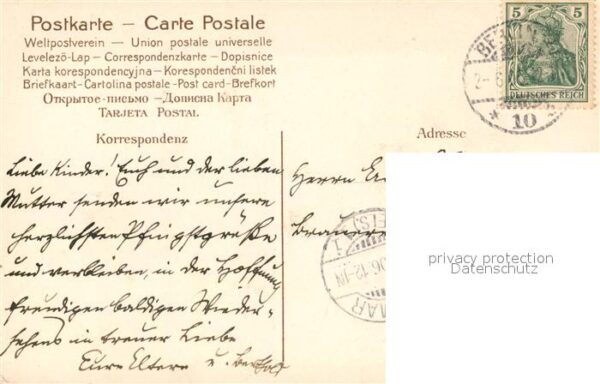 Postkarte – Carte Postale
Weltpostverein — Union postale universelle
Levelező-Lap — Correspondenzkarte — Dopisnice
Karta korespondencyjna — Korespondenční listek
Briefkaart - Cartolina postale - Post card - Brefkort
Открытое-письмо — Дописна Карта
Tarjeta Postal
5 5
DEUTSCHES REICH
10
Korrespondenz
Adresse
Liebe Kinder! Euch und der lieben
Mutter senden wir unsere
herzlichsten Pfingstgrüße
und verbleiben, in der Hoffnung
freudigen baldigen Wieder-
sehens in treuer Liebe
Eure Eltern u.
Herrn
Brauere
privacy protection
Datenschutz